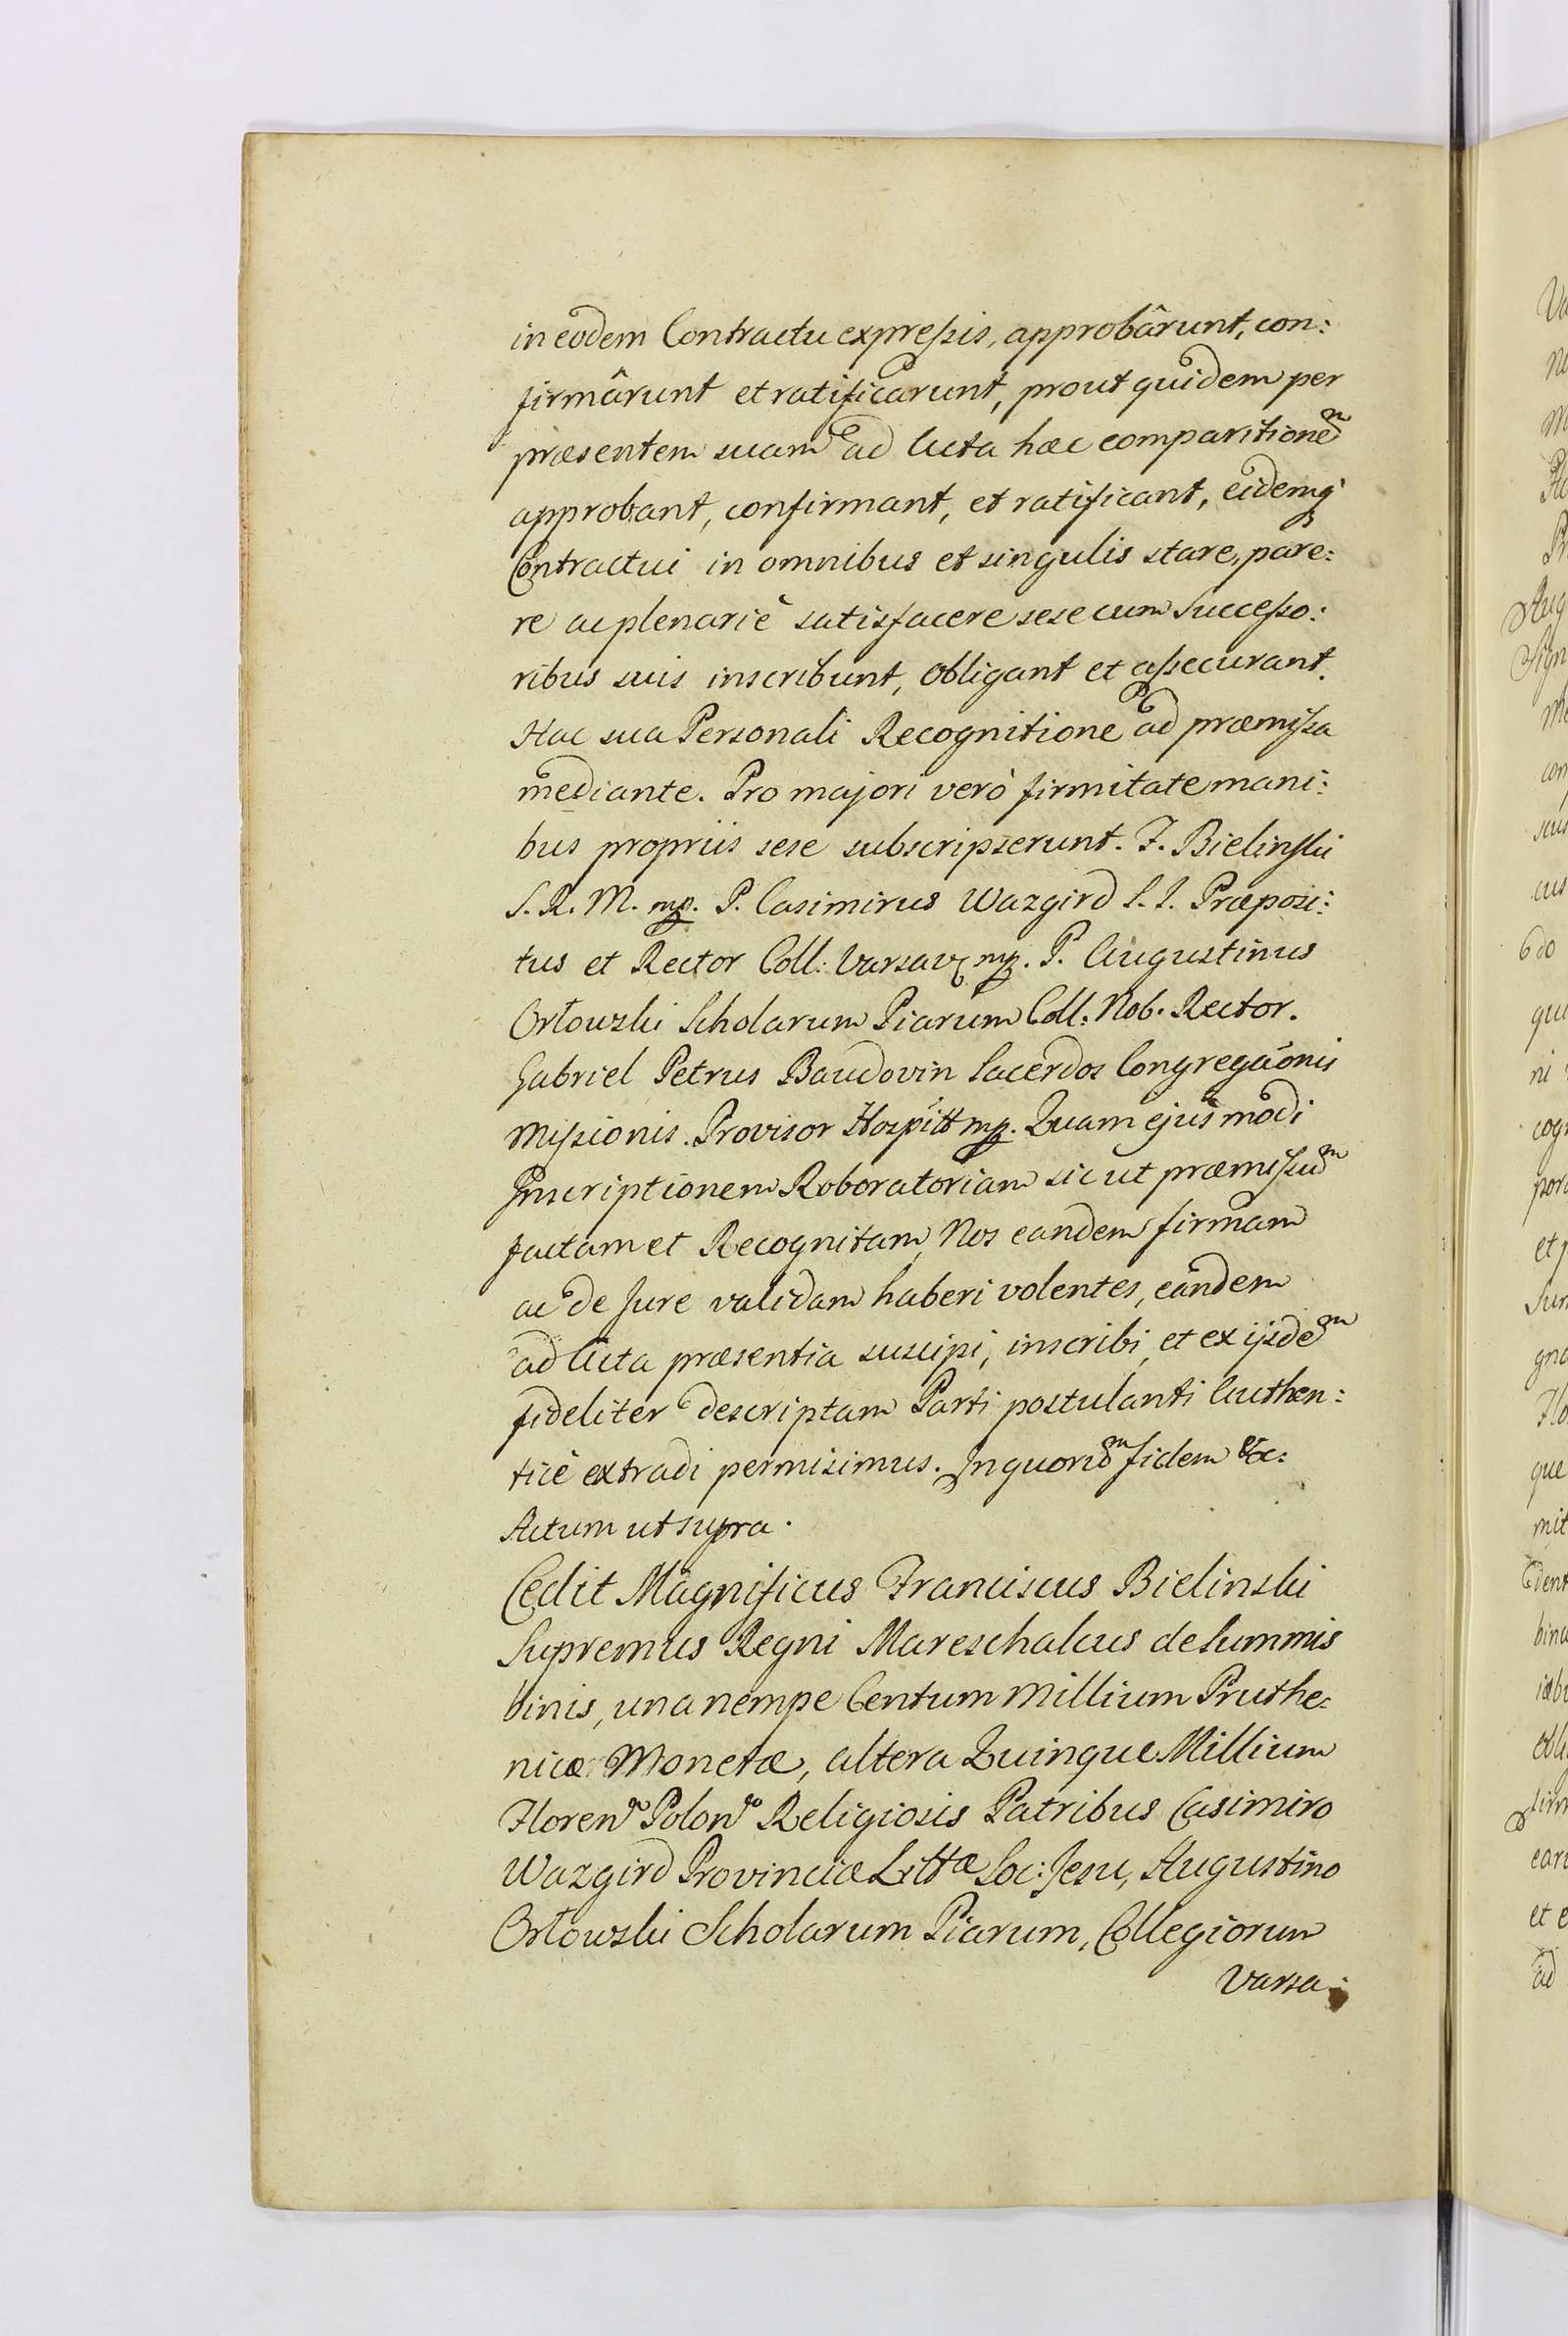 in eodem Contractu expreßis, approbârunt, con:
firmârunt et ratificarunt, prout quidem per
præsentem suam ad Acta hæc comparitionem
approbant, confirmant, et ratificant, eidemq̀
Contractui in omnibus et singulis stare, pare:
re ac plenariè satisfacere sese cum Succeßo:
ribus suis inscribunt, obligant et aßecurant.
Hac sua Personali Recognitione ad præmißa
mediante. Pro majori verò firmitate mani:
bus propriis sese subscripserunt. F. Bielinski
S. R. M. mp. P. Casimirus Wazgird S. I. Præposi:
tus et Rector Coll: Varsav mp. P. Augustinus
Orłowski Scholarum Piarum Coll: Nob. Rector.
Gabriel Petrus Baudovin Sacerdos Congregãonis
Mißionis. Provisor Hospitt mp. Quam ejusmodi
Inscriptionem Roboratoriam sic ut præmißum
factam et Recognitam, Nos eandem firmam
ac de Jure validam haberi volentes, eandem
ad Acta præsentia suscipi, inscribi, et ex ijsdem
fideliter descriptam Parti postulanti Authen:
ticè extradi permisimus. In quorum fidem &c:
Actum ut supra.
Cedit Magnificus Franciscus Bielinski
Supremus Regni Mareschalcus de Summis
binis, una nempe Centum Millium Pruthe:
nicæ Monetæ, altera Quinque Millium
Floren Polon Religiosis Patribus Casimiro
Wazgird Provinciæ Littæ Soc: Jesu, Augustino
Orłowski Scholarum Piarum, Collegiorum
Varsa: